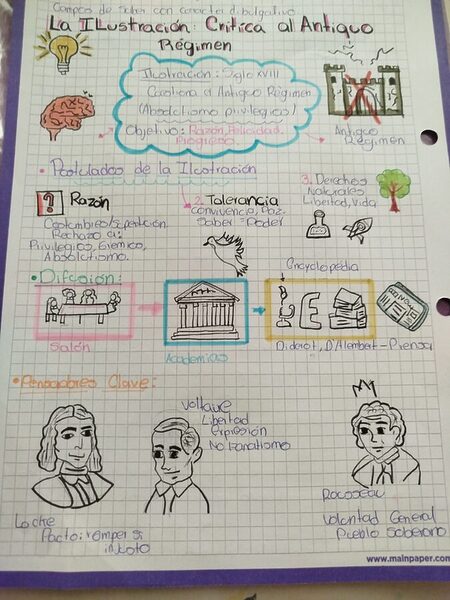 Campos de Saber con Carácter divulgativo
La Ilustración: Crítica al Antiguo
Régimen
Ilustración: Siglo XVIII
Cuestiona el Antiguo Régimen
(Absolutismo privilegios)
Objetivo: Razón, Felicidad,
Progreso
Antiguo
Régimen
• Postulados de la Ilustración
?
Razón
Costumbres/Superstición
Rechazo a:
Privilegios, Gremios,
Absolutismo.
2. Tolerancia
convivencia, Paz.
Saber = Poder
3. Derechos
Naturales
Libertad, Vida
• Difusión:
Encyclopédia
Salón
Academias
Diderot, D'Alembert - Prensa
• Pensadores Clave:
Locke
Pacto: romper si
injusto
Voltaire
Libertad
Expresión
No Fanatismo
Rousseau
Voluntad General
Pueblo Soberano
www.mainpaper.com